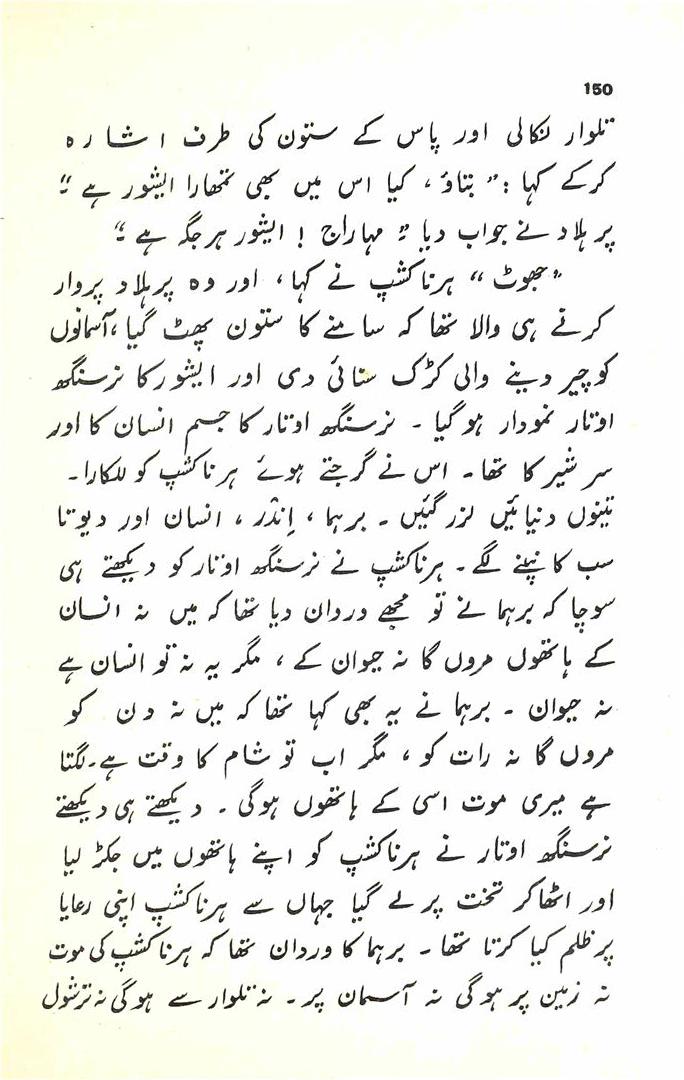 150
تلوار نکالی اور پاس کے ستون کی طرف اشارہ
کرکے کہا: ”بتاؤ، کیا اس میں بھی تمھارا ایشور ہے“
پرہلاد نے جواب دیا ”مہاراج! ایشور ہر جگہ ہے“
”جھوٹ“ ہرناکشپ نے کہا، اور وہ پرہلاد پر وار
کرنے ہی والا تھا کہ سامنے کا ستون پھٹ گیا، آسمانوں
کو چیر دینے والی کڑک سنائی دی اور ایشور کا نرسنگھ
اوتار نمودار ہوگیا ۔ نرسنگھ اوتار کا جسم انسان کا اور
سر شیر کا تھا ۔ اس نے گرجتے ہوئے ہرناکشپ کو للکارا ۔
تینوں دنیائیں لرز گئیں ۔ برہما، اِندر، انسان اور دیوتا
سب کانپنے لگے ۔ ہرناکشپ نے نرسنگھ اوتار کو دیکھتے ہی
سوچا کہ برہما نے تو مجھے وردان دیا تھا کہ میں نہ انسان
کے ہاتھوں مروں گا نہ حیوان کے، مگر یہ نہ تو انسان ہے
نہ حیوان ۔ برہما نے یہ بھی کہا تھا کہ میں نہ دن کو
مروں گا نہ رات کو، مگر اب تو شام کا وقت ہے ۔ لگتا
ہے میری موت اسی کے ہاتھوں ہوگی ۔ دیکھتے ہی دیکھتے
نرسنگھ اوتار نے ہرناکشپ کو اپنے ہاتھوں میں جکڑ لیا
اور اٹھا کر تخت پر لے گیا جہاں سے ہرناکشپ اپنی رعایا
پر ظلم کیا کرتا تھا ۔ برہما کا وردان تھا کہ ہرناکشپ کی موت
نہ زمین پر ہوگی نہ آسمان پر ۔ نہ تلوار سے ہوگی نہ ترشول